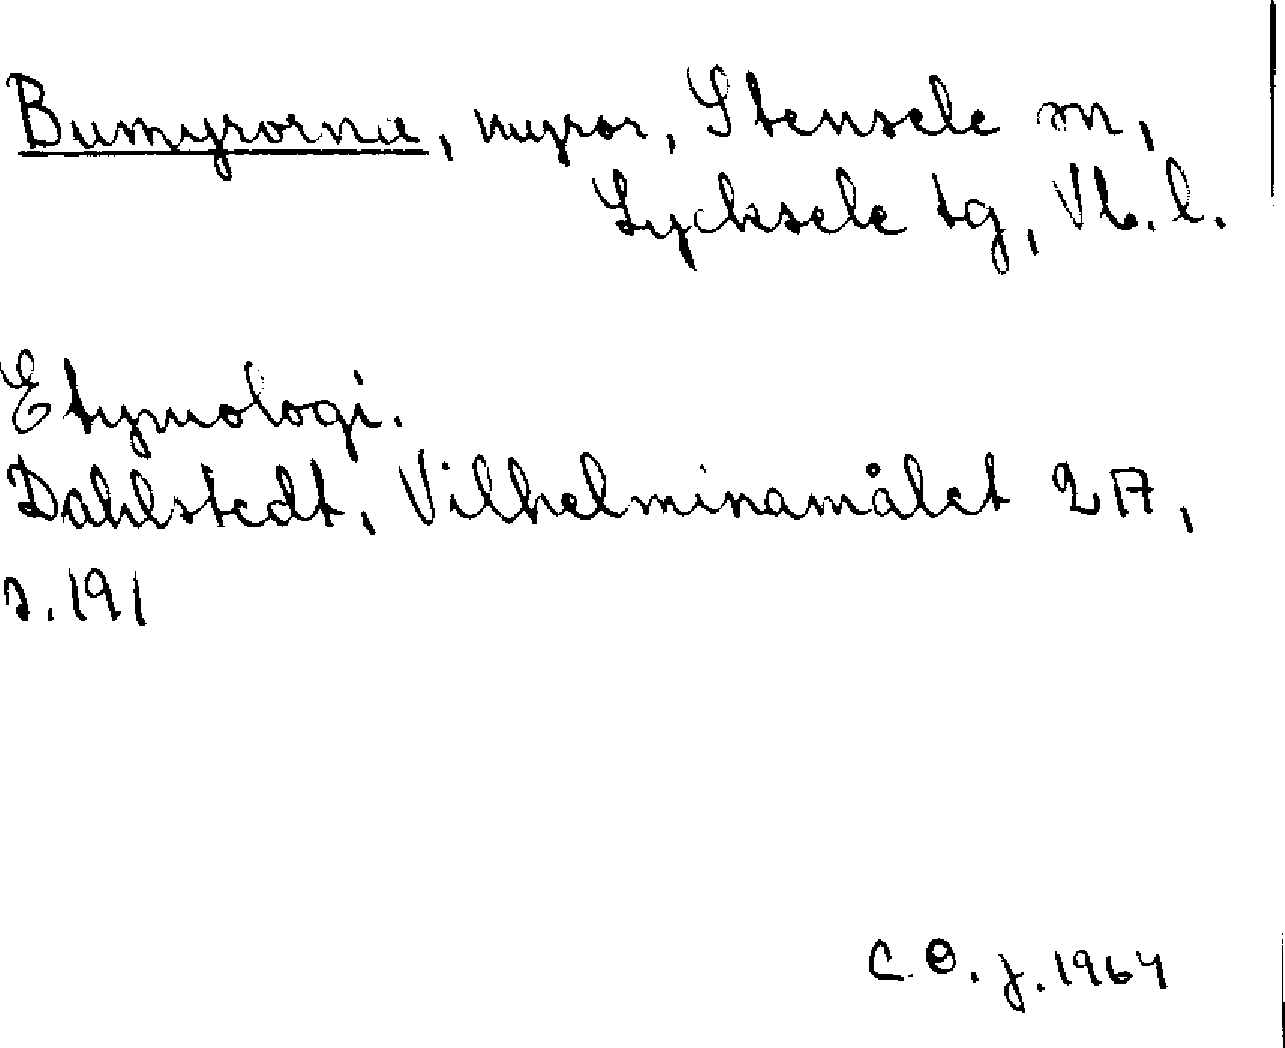 Bumyrorna, myror, Stensele sn,
Lycksele tg, Vb. l.
Etymologi.
Dahlstedt, Vilhelminamålet 2A,
s. 191
C. O. j. 1964